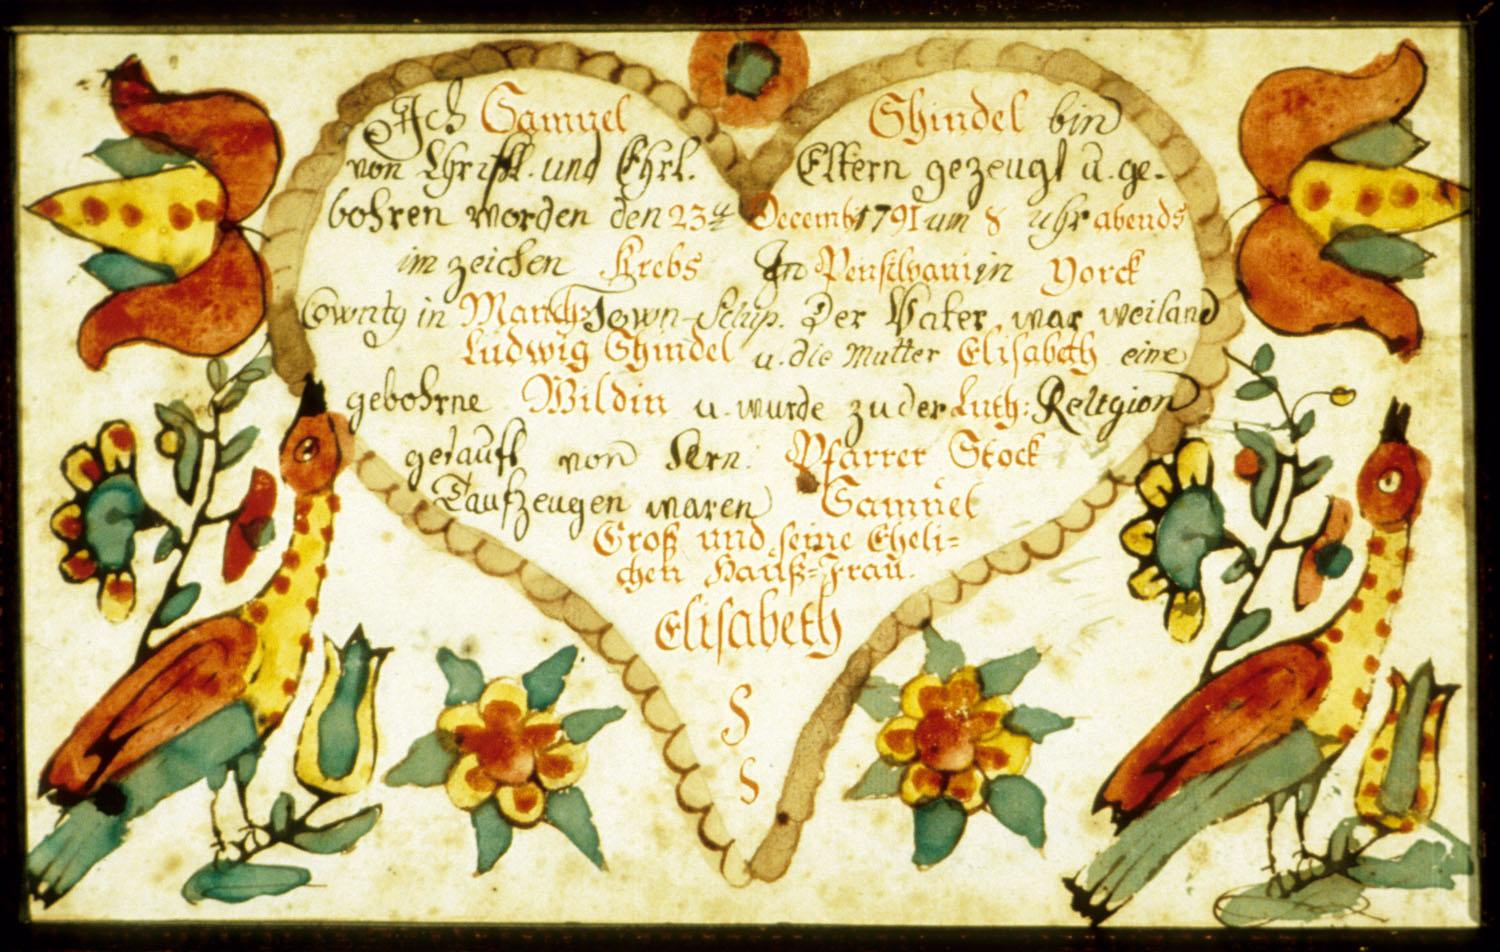 Ich Samuel Shindel bin
von Christl. und Ehrl. Eltern gezeugt u. ge-
bohren worden den 23t Decemb 1791 um 8 uhr abends
im zeichen Krebs In Pensilvani in Yorck
County in Town-Schip. Der Vater war weiland
Ludwig Shindel u. die Mutter Elisabeth eine
gebohrne Wildin u. wurde zu der Luth: Religion
getauft von Hrn: Pfarrer Stock
Taufzeugen waren Samuel
Groß und seine Eheli=
chen Hauß=Frau.
Elisabeth
S
S